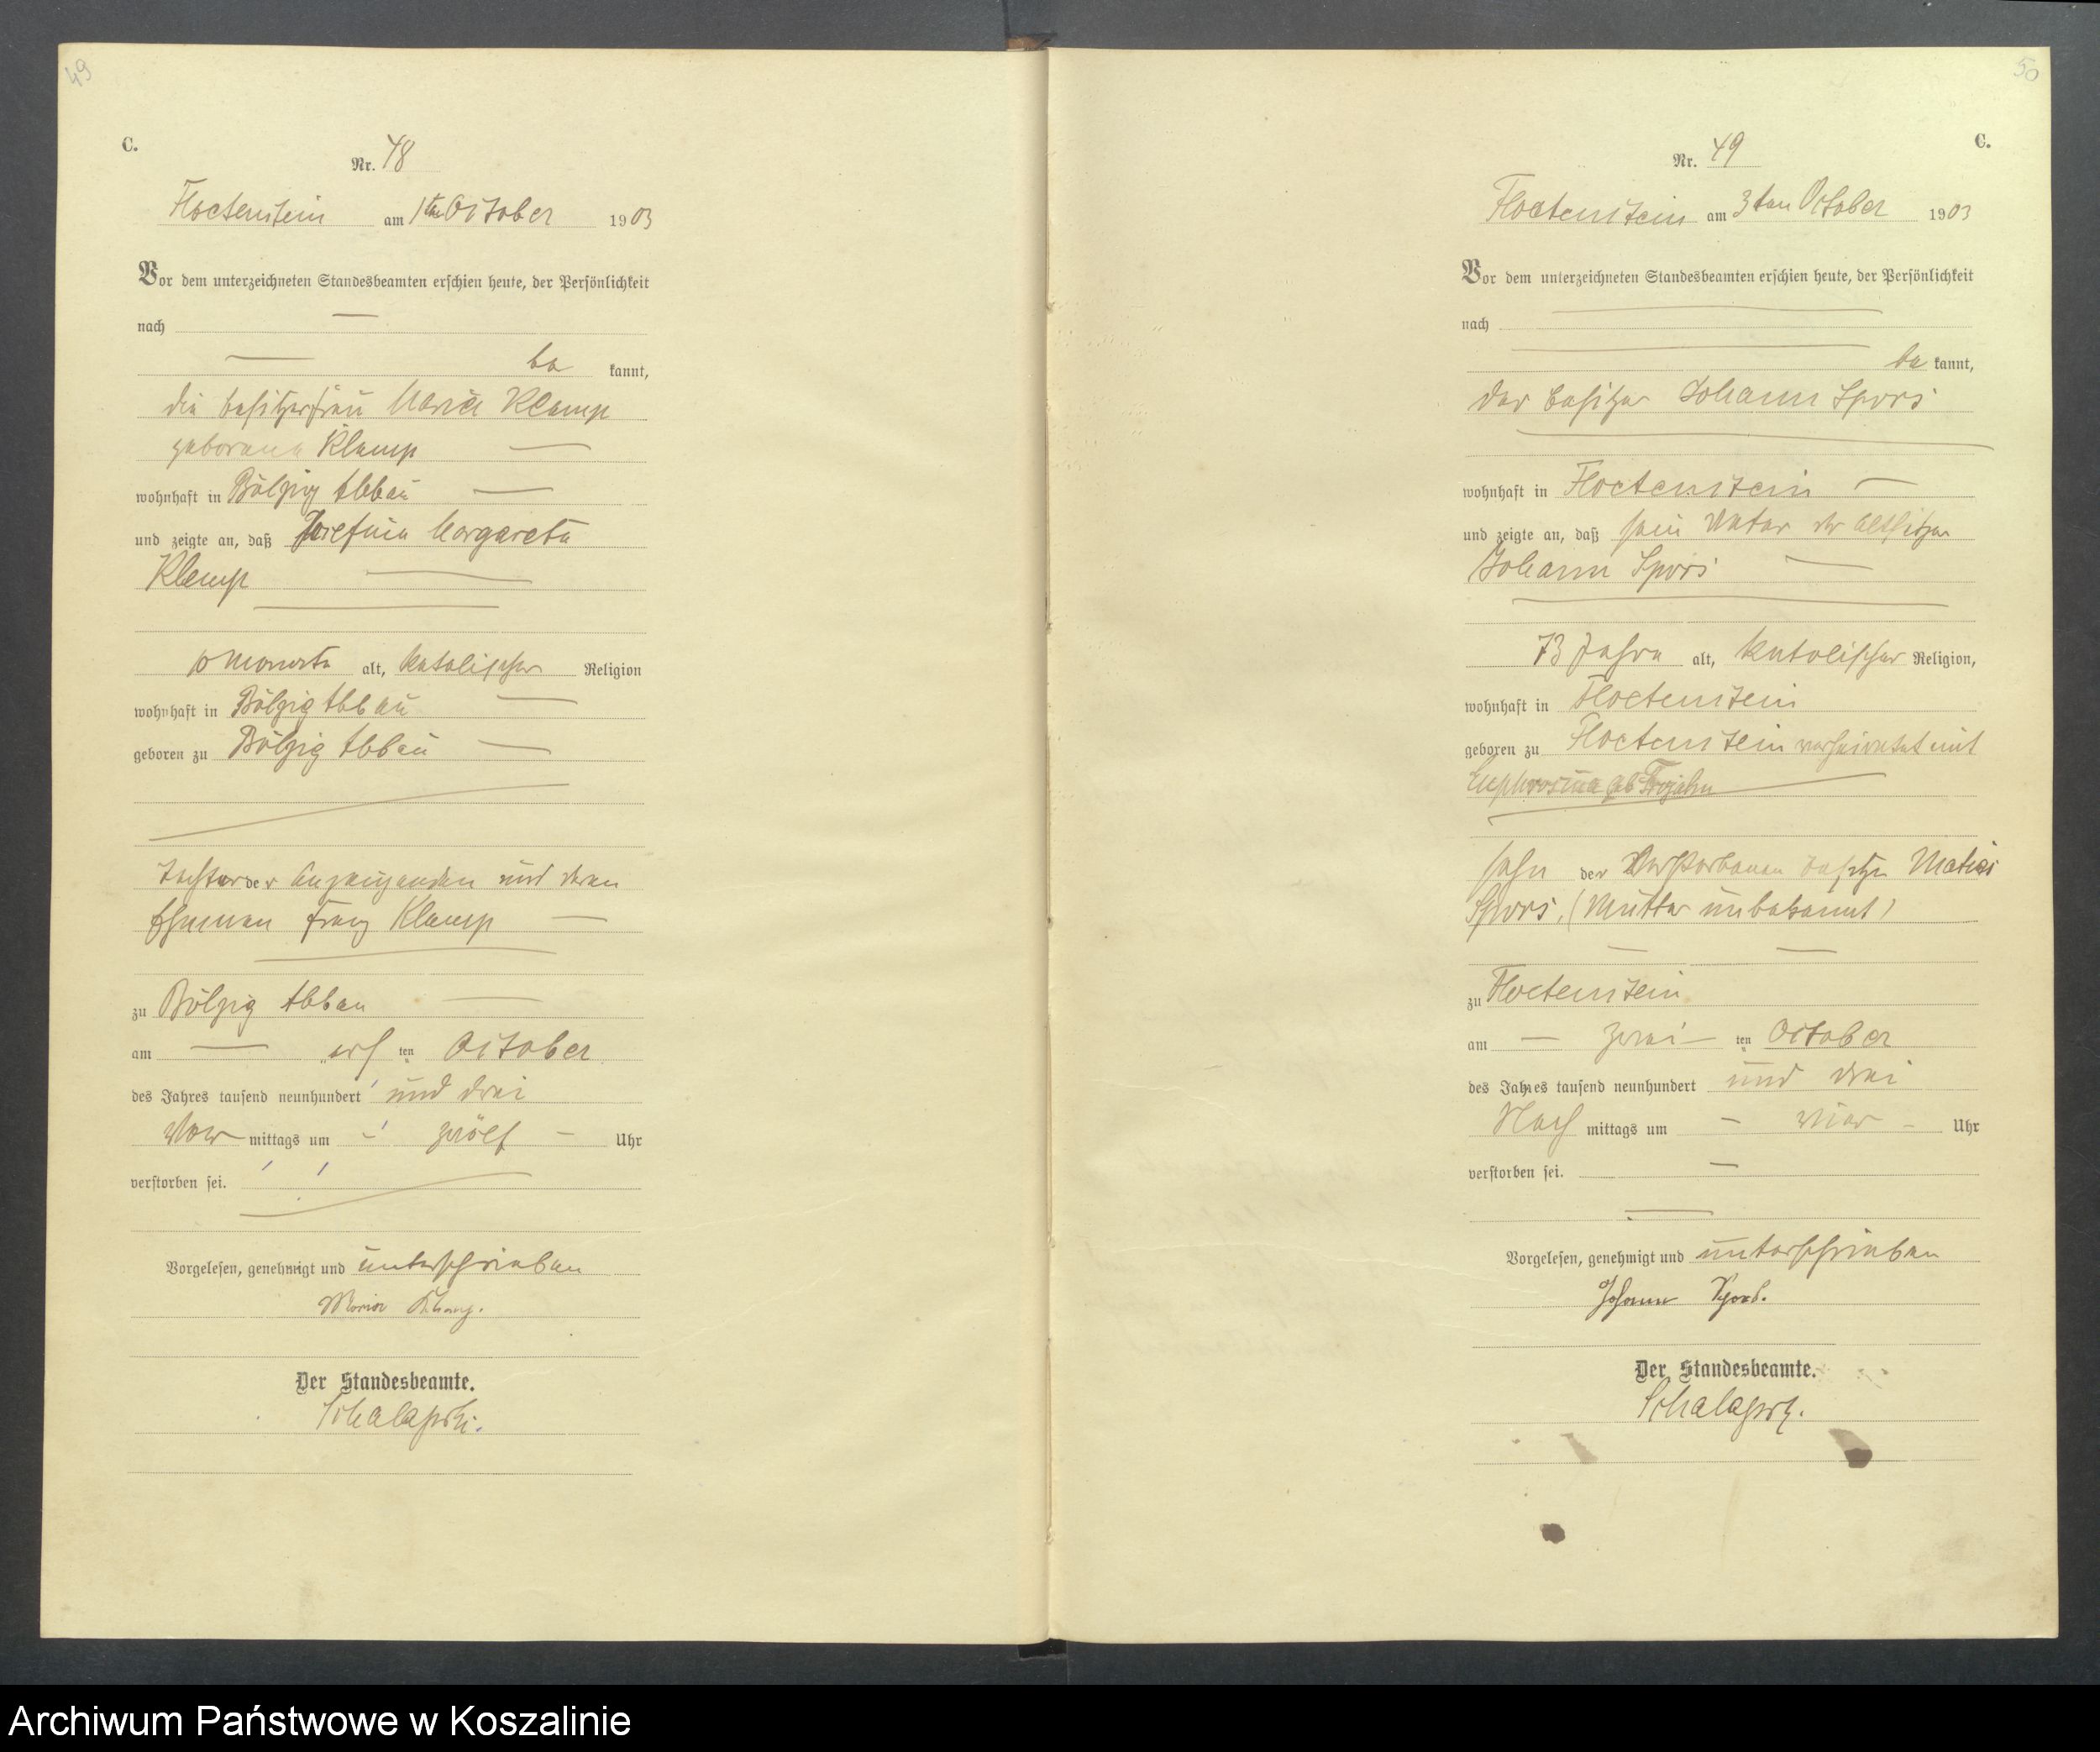 49
C.
Nr. 48
Floetenstein am 1ten October 1903
Vor dem unterzeichneten Standesbeamten erschien heute, der Persönlichkeit
nach —
— be kannt,
die Besitzerfrau Maria Klemp
geborene Klemp —
wohnhaft in Bölzig Abbau —
und zeigte an, daß Josefine Margarete
Klemp —
10 Monate alt, katolischer Religion
wohnhaft in Bölzig Abbau —
geboren zu Bölzig Abbau —
Tochter der Anzeigenden und deren
Ehemann Franz Klemp —
zu Bölzig Abbau —
am — ersten October
des Jahres tausend neunhundert und drei
Vor mittags um - zwölf - Uhr
verstorben sei.
Vorgelesen, genehmigt und unterschrieben
Maria Klemp.
Der Standesbeamte.
50
C.
Nr. 49
Floetenstein am 3ten October 1903
Vor dem unterzeichneten Standesbeamten erschien heute, der Persönlichkeit
nach —
— be kannt,
der Besitzer Johann Spors
wohnhaft in Floetenstein —
und zeigte an, daß sein Vater der Altsitzer
Johann Spors —
73 Jahre alt, katolischer Religion,
wohnhaft in Floetenstein
geboren zu Floetenstein verheiratet mit
Euphrosina geb Trojahn —
Sohn der Verstorbenen Besitzer
Spors, (Mutter unbekannt)
zu Floetenstein
am — zwei — ten October
des Jahres tausend neunhundert und drei
Nach mittags um - vier - Uhr
verstorben sei. —
Vorgelesen, genehmigt und unterschrieben
Johann Spors.
Der Standesbeamte.
Archiwum Państwowe w Koszalinie